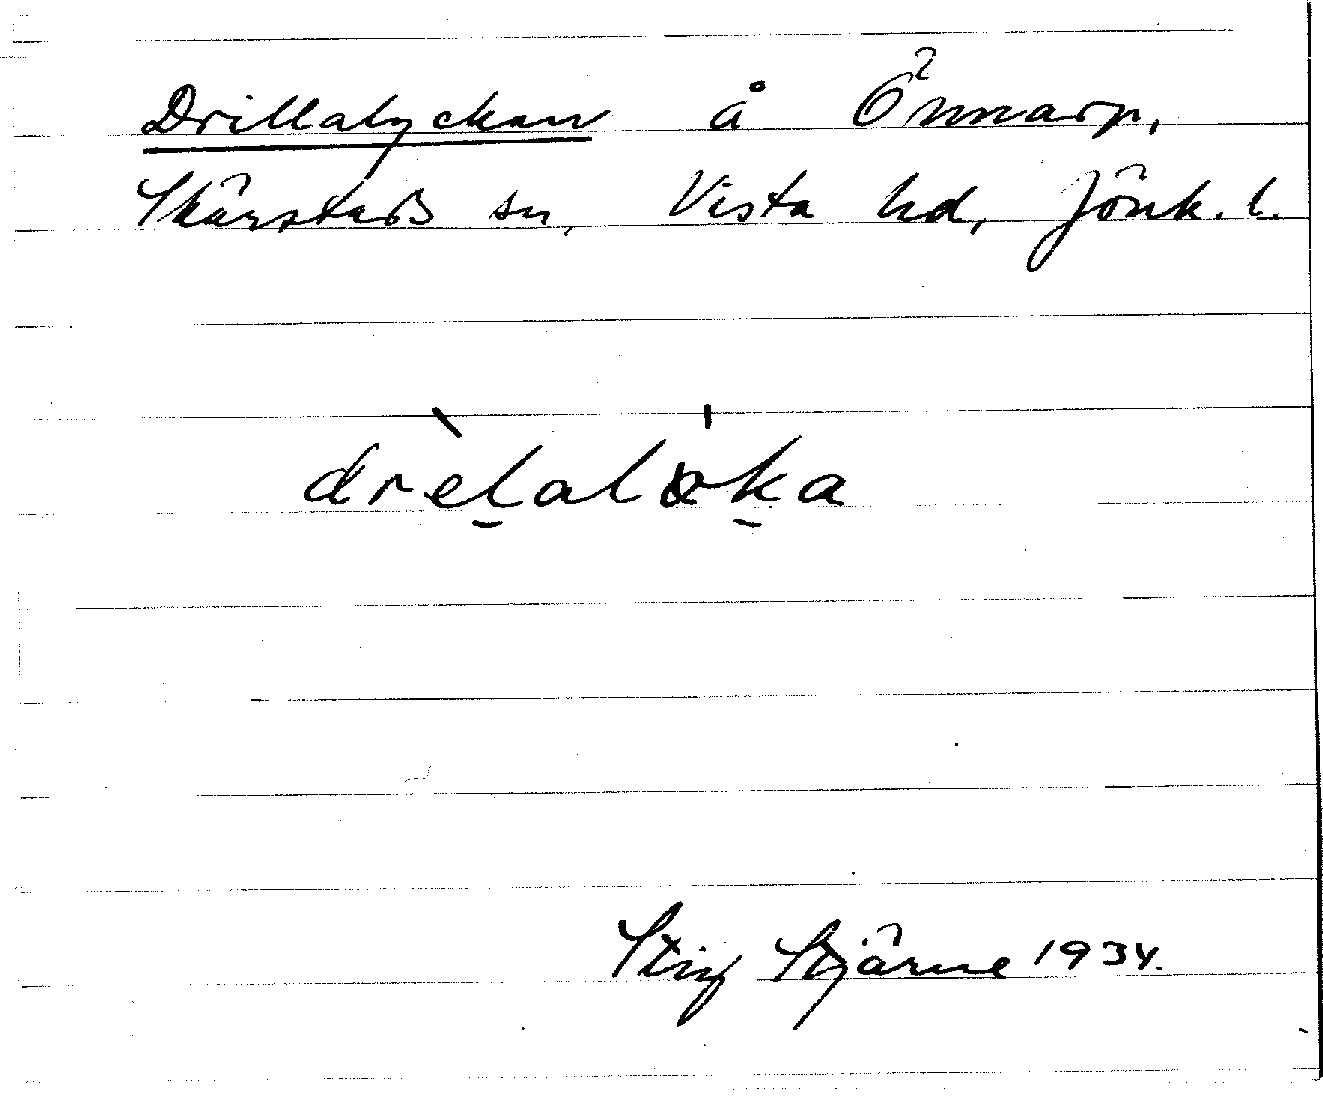 Drillalyckan å Önnarp,
Skärstads sn, Vista hd, Jönk. l.
drèlalöka
Stig Stjärne 1934.